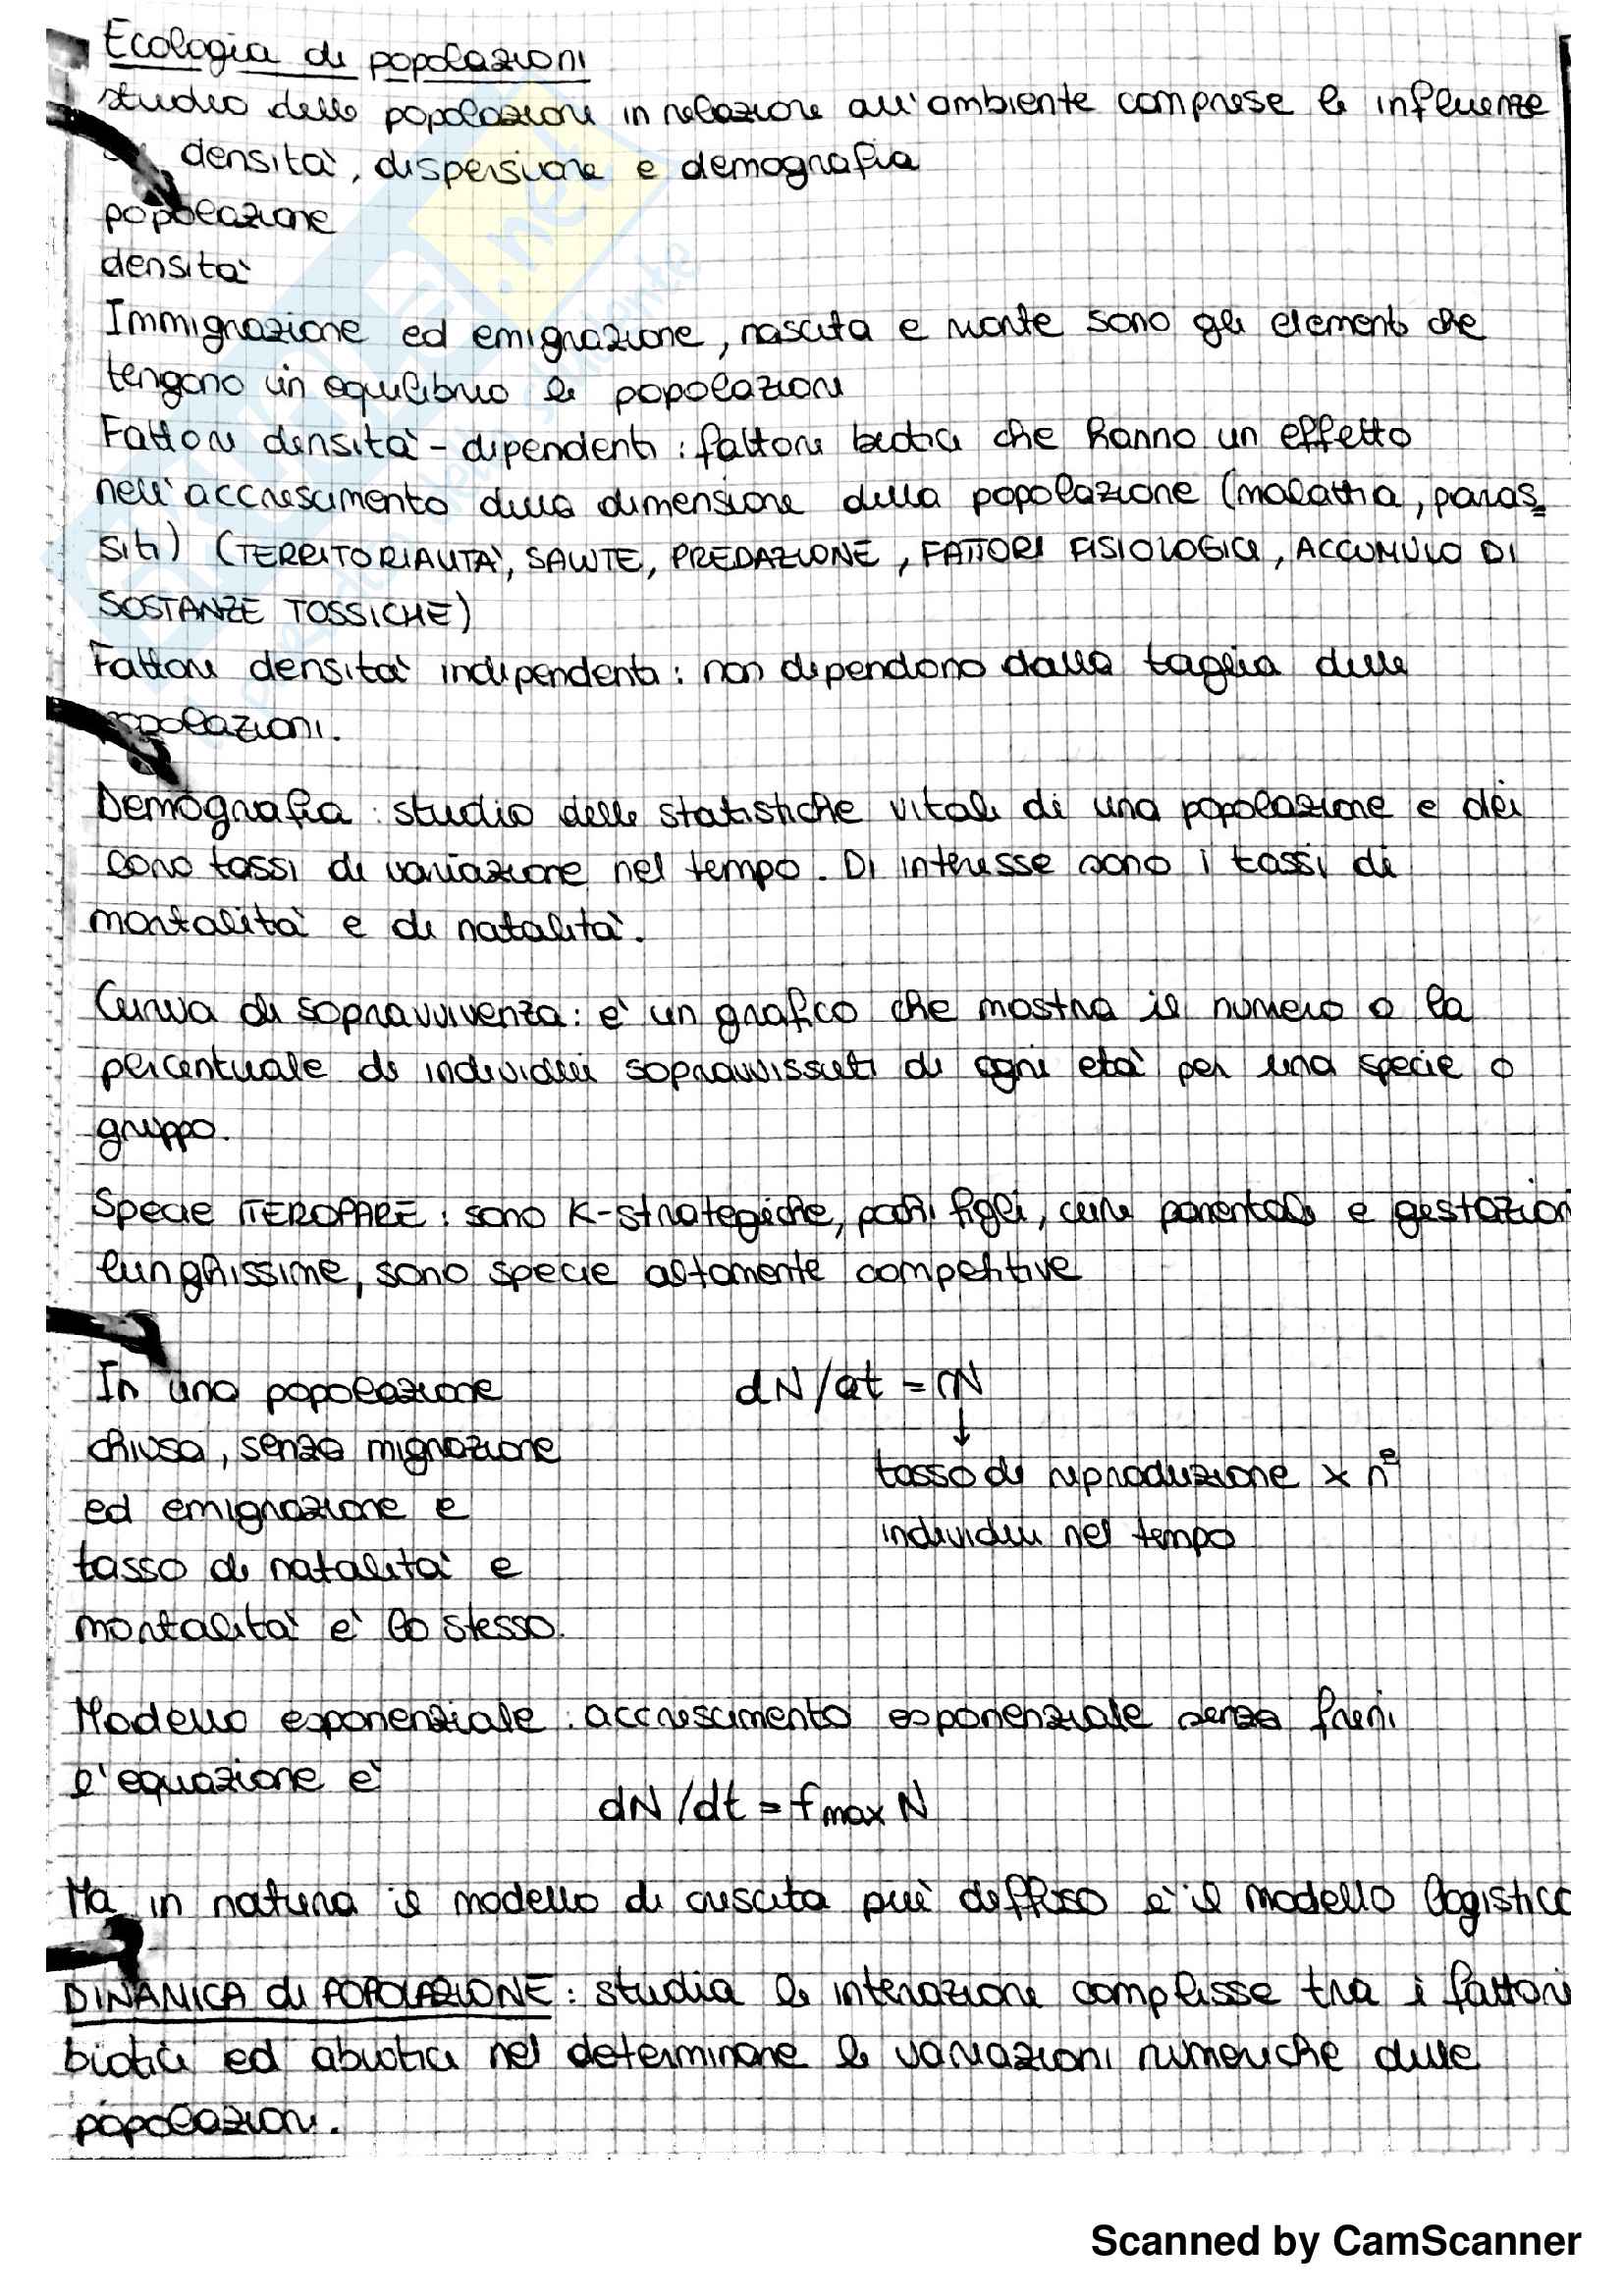 Ecologia di popolazioni
studio delle popolazioni in relazione all'ambiente comprese le influenze
densità, dispersione e demografia
popolazione
densità
Immigrazione ed emigrazione, nascita e morte sono gli elementi che
tengono in equilibrio le popolazioni
Fattori densità-dipendenti: fattori biotici che hanno un effetto
nell'accrescimento della dimensione della popolazione (malattia, paras=
siti) (TERRITORIALITÀ, SALUTE, PREDAZIONE, FATTORI FISIOLOGICI, ACCUMULO DI
SOSTANZE TOSSICHE)
Fattori densità indipendenti: non dipendono dalla taglia delle
popolazioni.
Demografia: studio delle statistiche vitali di una popolazione e dei
loro tassi di variazione nel tempo. Di interesse sono i tassi di
mortalità e di natalità.
Curva di sopravvivenza: è un grafico che mostra il numero o la
percentuale di individui sopravvissuti di ogni età per una specie o
gruppo.
Specie ITEROPARE: sono K-strategiche, pochi figli, cure parentali e gestazion
lunghissime, sono specie altamente competitive
In una popolazione
chiusa, senza migrazione
ed emigrazione e
tasso di natalità e
mortalità è lo stesso.
dN/dt = rN
↓
tasso di riproduzione x n°
individui nel tempo
Modello esponenziale: accrescimento esponenziale senza freni
l'equazione è
dN/dt = rmax N
Ma in natura il modello di crescita più diffuso è il modello logistico
DINAMICA di POPOLAZIONE: studia le interazioni complesse tra i fattori
biotici ed abiotici nel determinare le variazioni numeriche delle
popolazioni.
Scanned by CamScanner